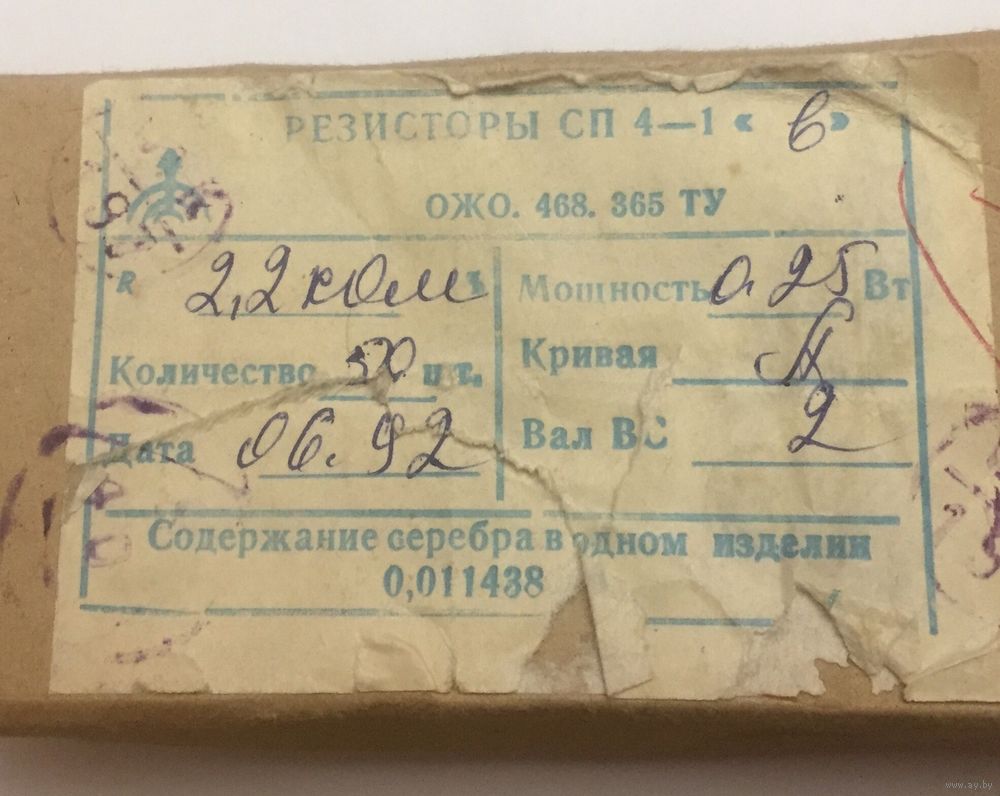 РЕЗИСТОРЫ СП 4—1 « в »
ОЖО. 468. 365 ТУ
R 2,2 ком
Мощность 0.25 Вт
Количество шт.
Кривая А
Дата 06.92
Вал ВС 2
Содержание серебра в одном изделии
0,011438
www.ay.by